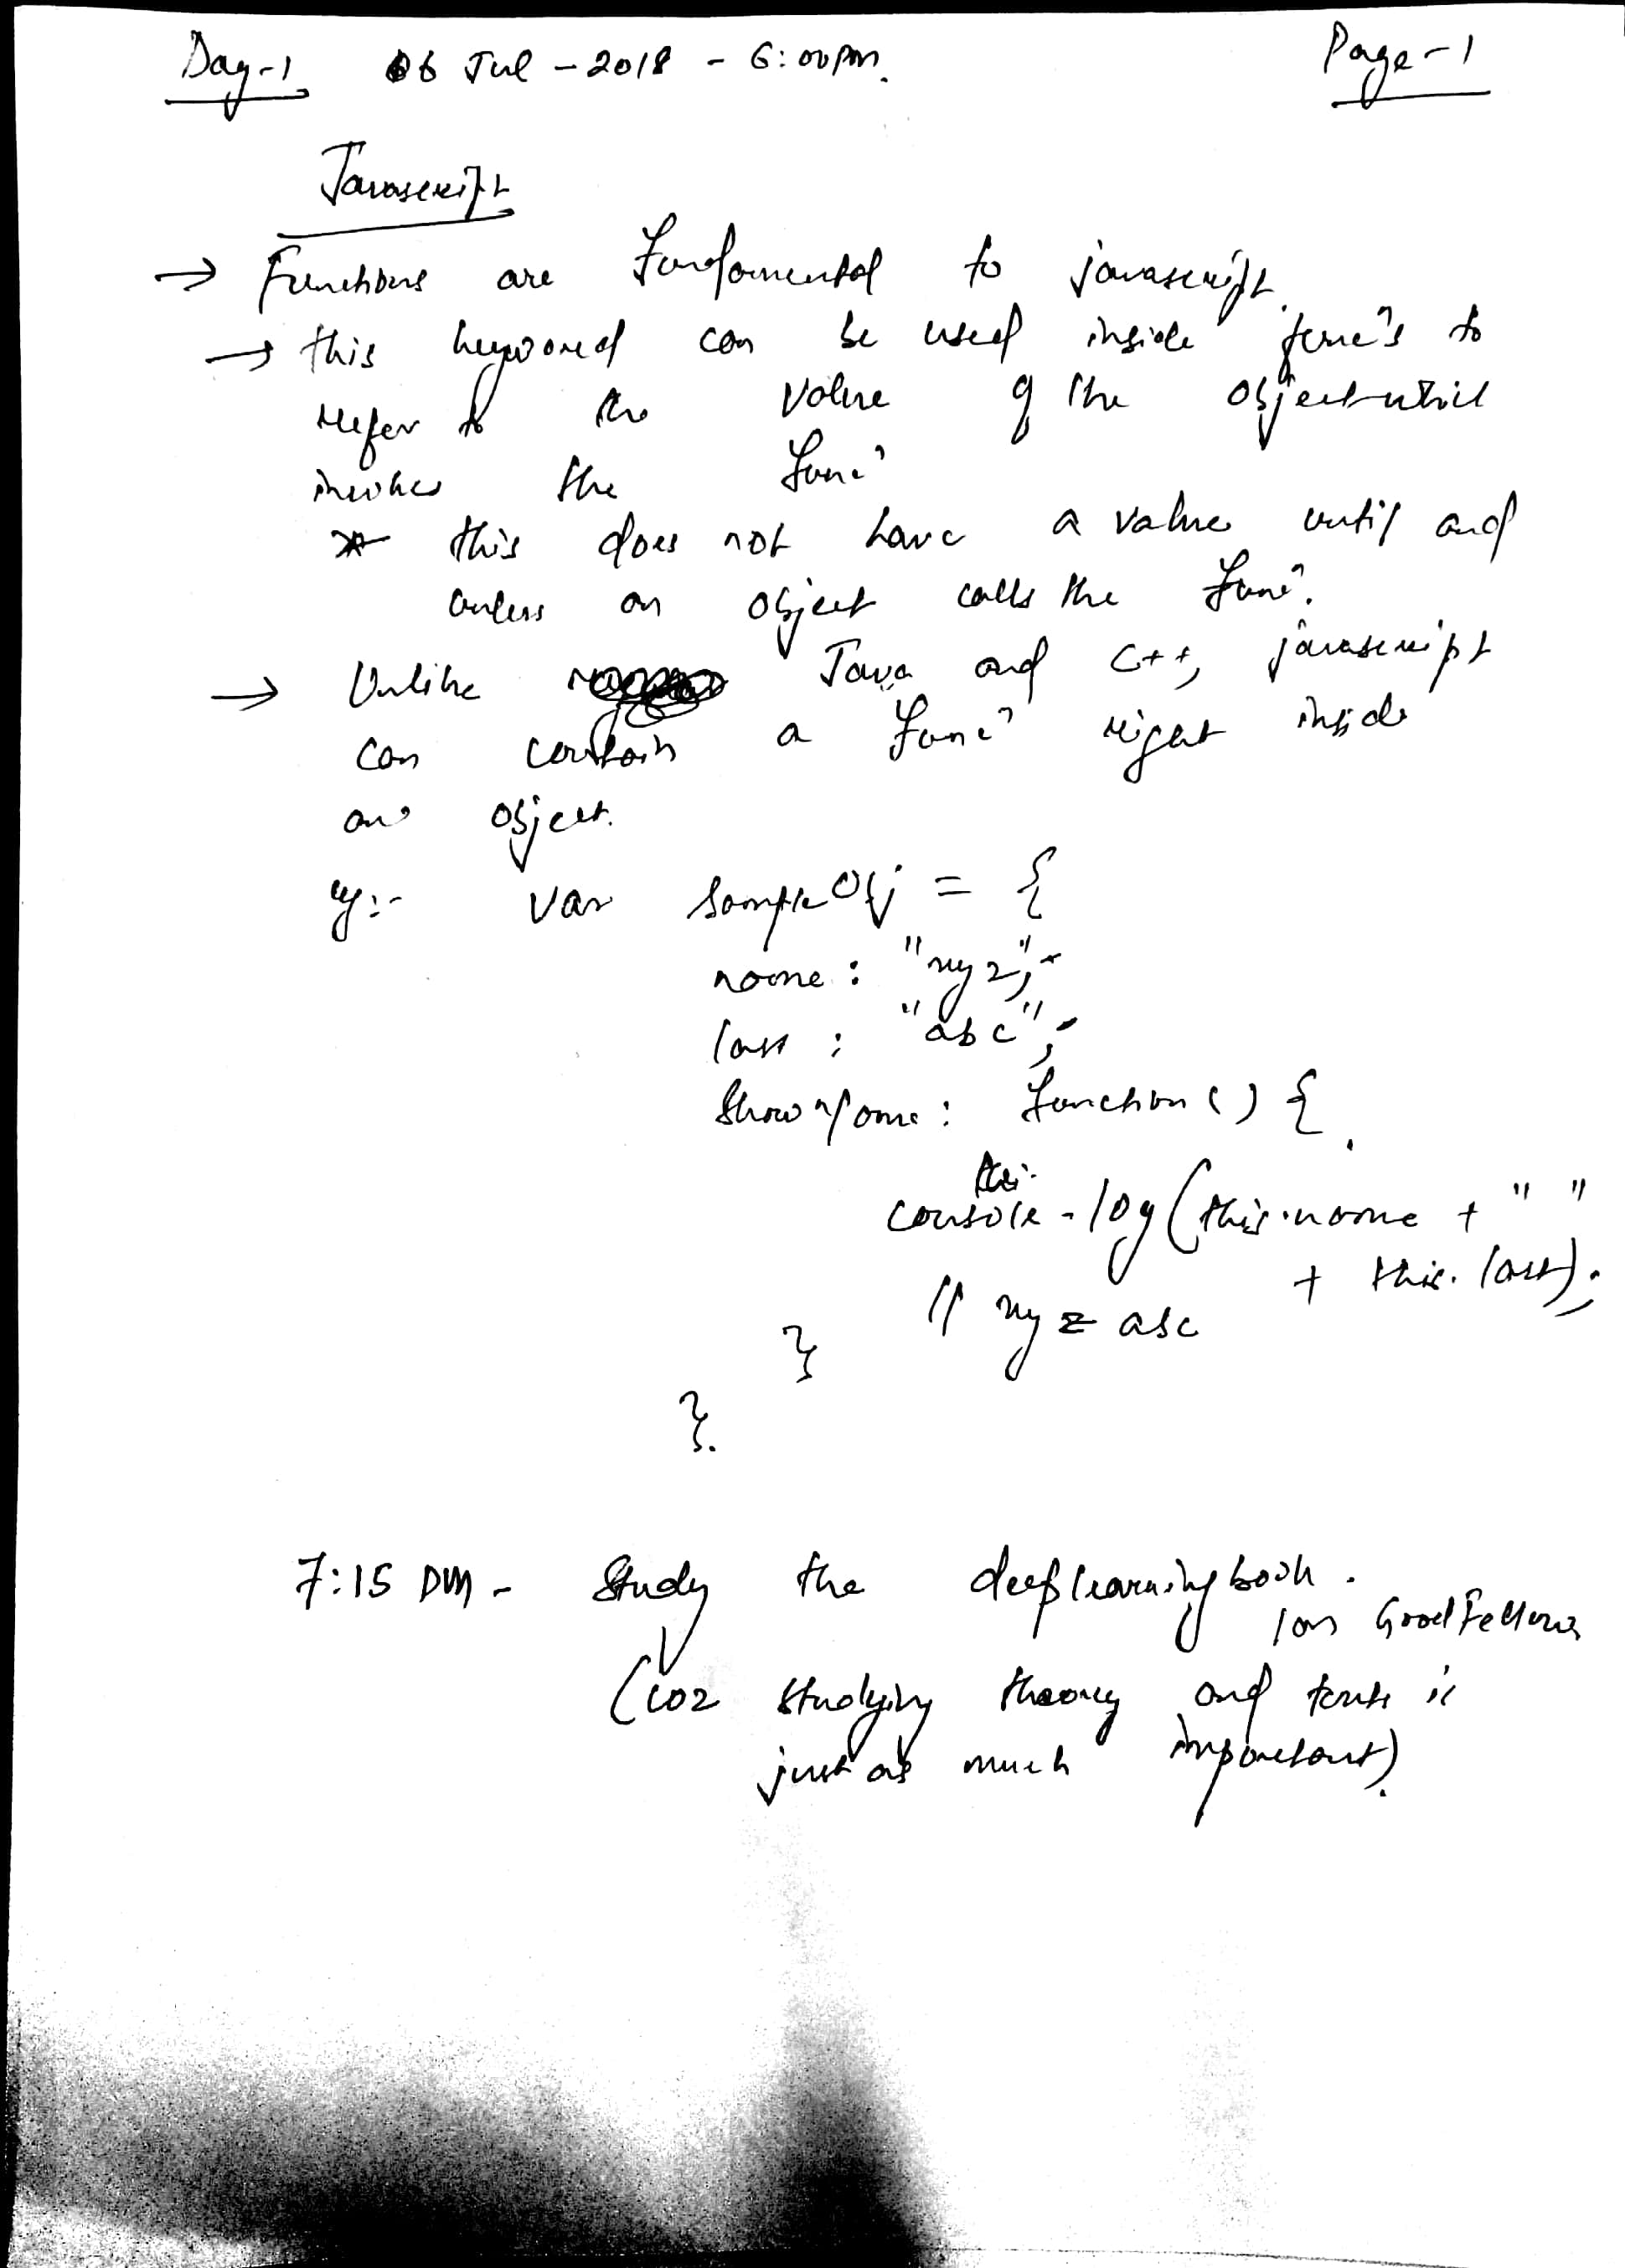 Day-1 06 Jul - 2018 - 6:00pm. Page-1
Javascript
→ Functions are fundamental to javascript.
→ this keyword can be used inside func's to
refer to the value of the object which
invokes the func
* this does not have a value until and
unless an object calls the func.
→ Unlike Java and C++, javascript
can contain a func right inside
an object.
eg:- var sampleObj = {
name : "xyz",
last : "abc",
showName : function() {
console.log(this.name + " "
+ this.last);
// xyz abc
}
}.
7:15 PM - Study the deeplearningbook.
Ian GoodFellow
(coz studying theory and is
just as much important).